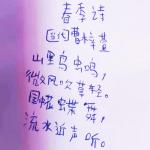 春季诗
[当代]曹梓萱
山里鸟虫鸣，
微风吹草轻。
围裙蝶舞，
流水近声听。